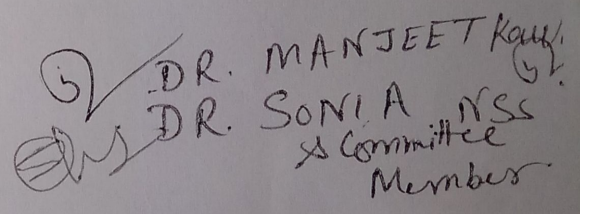 DR. MANJEET Kaur.
DR. SONIA NSS
& Committee
Member